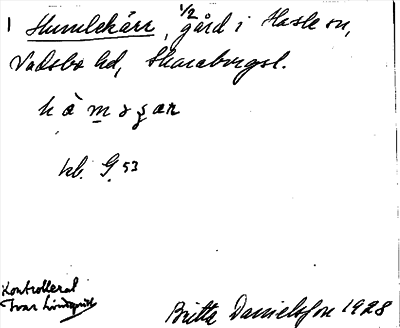 1 Humlekärr, 1/2 gård i Hasle sn,
Vadsbo hd, Skaraborgsl.
kl. G. 53
Kontrollerad
Ivar Lindquist
Britta Danielsson 1928